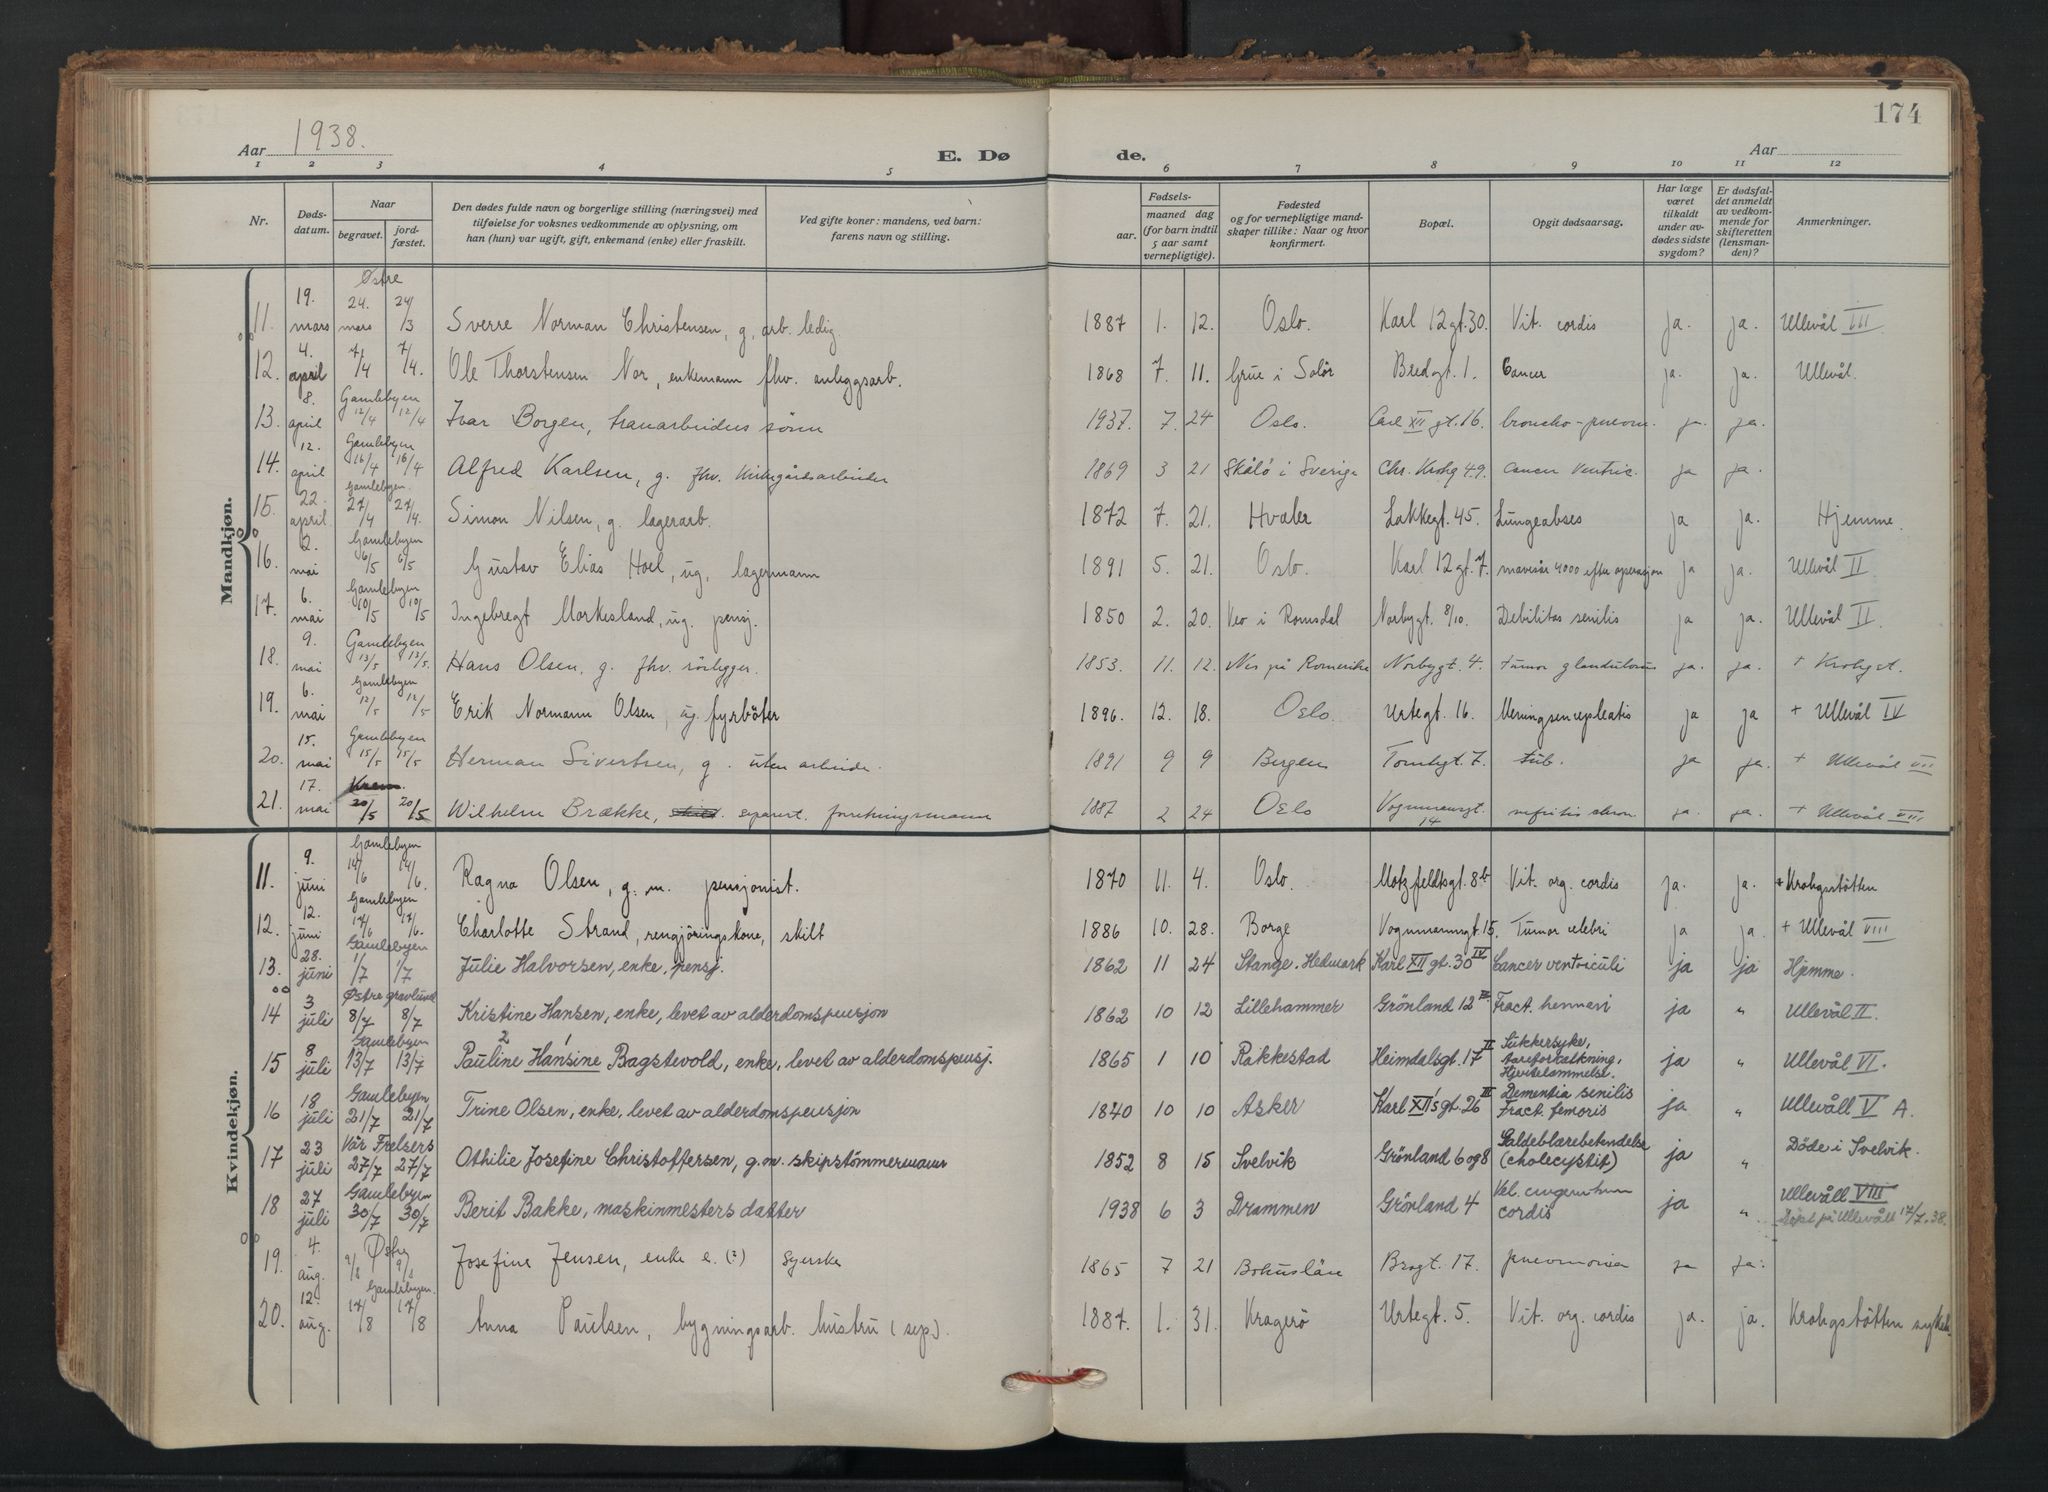 174
Aar 1938.
E. Dø
de.
Aar
1 2 3 4 5 6 7 8 9 10 11 12
Nr.
Døds-
datum.
Naar
begravet.
jord-
fæstet.
Den dødes fulde navn og borgerlige stilling (næringsvei) med
tilføielse for voksnes vedkommende av oplysning, om
han (hun) var ugift, gift, enkemand (enke) eller fraskilt.
Ved gifte koner: mandens, ved barn:
farens navn og stilling.
Fødsels-
aar.
maaned dag
(for barn indtil
5 aar samt
vernepligtige).
Fødested
og for vernepligtige mand-
skaper tillike: Naar og hvor
konfirmert.
Bopæl.
Opgit dødsaarsag.
Har læge
været
tilkaldt
under av-
dødes sidste
sygdom?
Er dødsfal-
det anmeldt
av vedkom-
mende for
skifteretten
(lensman-
den)?
Anmerkninger.
Mandkjøn.
Østre
11. 19. mars 24. mars 24/3 Sverre Norman Christensen, g, arb. ledig 1887 1. 12. Oslo. Karl 12 gt. 30. Vit. cordis ja. ja. Ullevål III
12. 4. april 7/4 7/4. Ole Thorstensen Nor, enkemann fhv. anleggsarb. 1868 7. 11. Grue i Solör Bredgt. 1. Cancer ja. ja. Ullevål.
Gamlebyen
13. 8. april 12/4 12/4 Ivar Borgen, sönn 1937. 7. 24 Oslo. Carl XII gt. 16. broncho-pneum. ja. ja.
Gamlebyen
14. 12. april 16/4 16/4 Alfred Karlsen, g. fhv. Kirkegårdsarbeider 1869 3 21 i Sverige Chr. Krohg 49. Cancer Ventric. ja ja.
Gamlebyen
15. 22. april. 27/4 27/4. Simon Nilsen, g. lagerarb. 1872 7. 21. Hvaler Lakkegt. 45. Lungeabses ja ja. Hjemme.
Gamlebyen
16. 2. mai 6/5 6/5 Gustav Elias Hoel, ug, lagermann 1891 5. 21. Oslo. Karl 12 gt. 7. mavesår efter operasjon ja ja. Ullevål II
Gamlebyen
17. 6. mai 10/5 10/5 Ingebregt Morkesland, ug. pensj. 1850 2. 20. Veo i Romsdal Norbygt. 8/10. Debilitas senilis ja ja. Ullevål II
Gamlebyen
18. 9. mai 13/5 13/5. Hans Olsen, g. fhv. rörlegger. 1853. 11. 12. Nes på Romerike Norbygt. 4. tumor glandularis ja. ja. + Krohgst.
Gamlebyen
19. 6. mai 12/5 12/5 Erik Normann Olsen, ug. fyrböter 1896. 12. 18. Oslo. Urtegt. 16. ja ja + Ullevål IV
Gamlebyen
20. 15. mai 15/5 15/5 Herman Sivertsen, g. uten arbeide. 1891 9 9 Bergen Tomtegt. 7. tub. ja ja. + Ullevål VII
Krem.
21. 17. mai 20/5 20/5 Wilhelm Brække, skilt. separert. forretningsmann 1887 2 24 Oslo Vognmannsgt. 14 nefritis chron ja. ja. + Ullevål VIII
Kvindekjøn.
Gamlebyen
11. 9. juni 14/6 14/6. Ragna Olsen, g. m. pensjonist. 1870 11. 4. Oslo. Motzfeldtsgt. 8b Vit. org. cordis ja. ja. + Krohgsstötten
Gamlebyen
12. 12. juni 17/6 17/6. Charlotte Strand, rengjöringskone, skilt 1886 10. 28. Borge Vognmannsgt. 15. Tumor celebri ja ja. + Ullevål VIII
Gamlebyen
13. 28. juni 1/7 1/7 Julie Halvorsen, enke, pensj. 1862 11 24 Stange, Hedmark Karl XII gt. 30 IV Cancer ventriculi ja ja Hjemme.
Østre gravlund
14 3 juli 8/7 8/7 Kristine Hansen, enke, levet av alderdomspensjon 1862 10 12 Lillehammer Grönland 12 Fract. ja " Ullevål II.
Gamlebyen
2 1
15 8 juli 13/7 13/7 Pauline Hansine Bagstevold, enke, levet av alderdomspensj. 1865 1 10 Rakkestad Heimdalsgt. 17 II Sukkersyke, Aareforkalkning, Hjertelammelse. ja " Ullevål VI.
Gamlebyen
16 18 juli 21/7 21/7 Trine Olsen, enke, levet av alderdomspensjon 1840 10 10 Asker Karl XII's gt. 26 III Dementia senilis Fract. femoris ja " Ullevåll V A.
Vår Frelsers
17 23 juli 27/7 27/7 Othilie Josefine Christoffersen, g.m. skipstömmermann 1852 8 15 Svelvik Grönland 6 og 8 Galdeblærebetendelse (cholecystit) ja " Döde i Svelvik.
Gamlebyen
18 27 juli 30/7 30/7 Berit Bakke, maskinmesters datter 1938 6 3 Drammen Grönland 4 cordis ja " Ullevåll VIII
Döpt på Ullevåll 17/7.38.
Østre
19. 4. aug. 9/8 9/8 Josefine Jensen, enke e. (?) Syerske 1865 7 21 Bohuslän 17. pneumonia ja ja.
Gamlebyen.
20. 12. aug. 17/8 17/8 Anna Paulsen, bygningsarb. hustru (sep). 1887. 1. 31. Kragerö Urtegt. 5. Vit. org. cordis ja. ja. Krohgstötten sykeh.